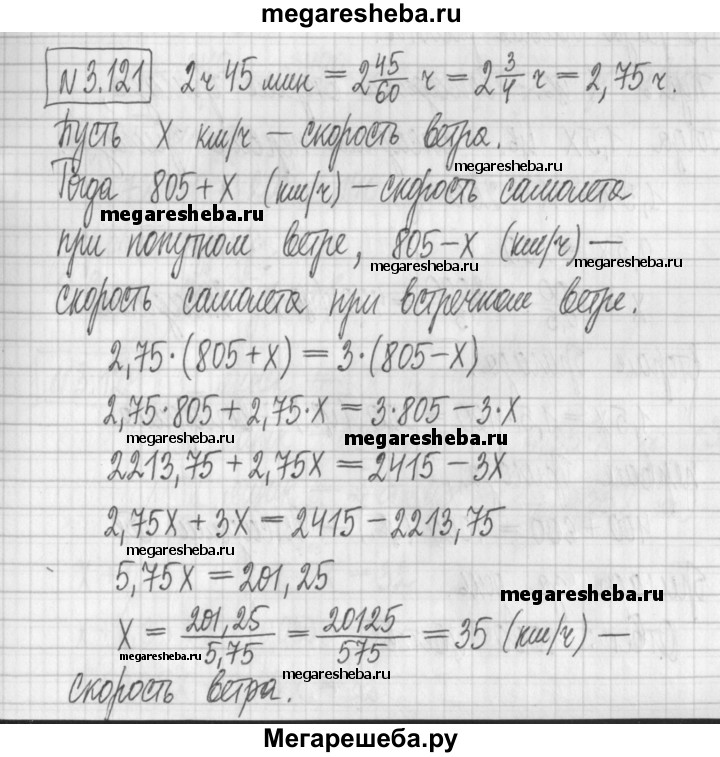 megaresheba.ru
N 3.121 2 ч 45 мин = 2 45/60 ч = 2 3/4 ч = 2,75 ч.
Пусть X км/ч – скорость ветра.
megaresheba.ru
Тогда 805+X (км/ч) – скорость самолета
megaresheba.ru
при попутном ветре, 805–X (км/ч) –
megaresheba.ru
megaresheba.ru
скорость самолета при встречном ветре.
2,75·(805+X) = 3·(805–X)
2,75·805 + 2,75·X = 3·805 – 3·X
megaresheba.ru
megaresheba.ru
2213,75 + 2,75X = 2415 – 3X
2,75X + 3X = 2415 – 2213,75
megaresheba.ru
5,75X = 201,25
megaresheba.ru
X = 201,25/5,75 = 20125/575 = 35 (км/ч) –
megaresheba.ru
megaresheba.ru
скорость ветра.
Мегарешеба.ру